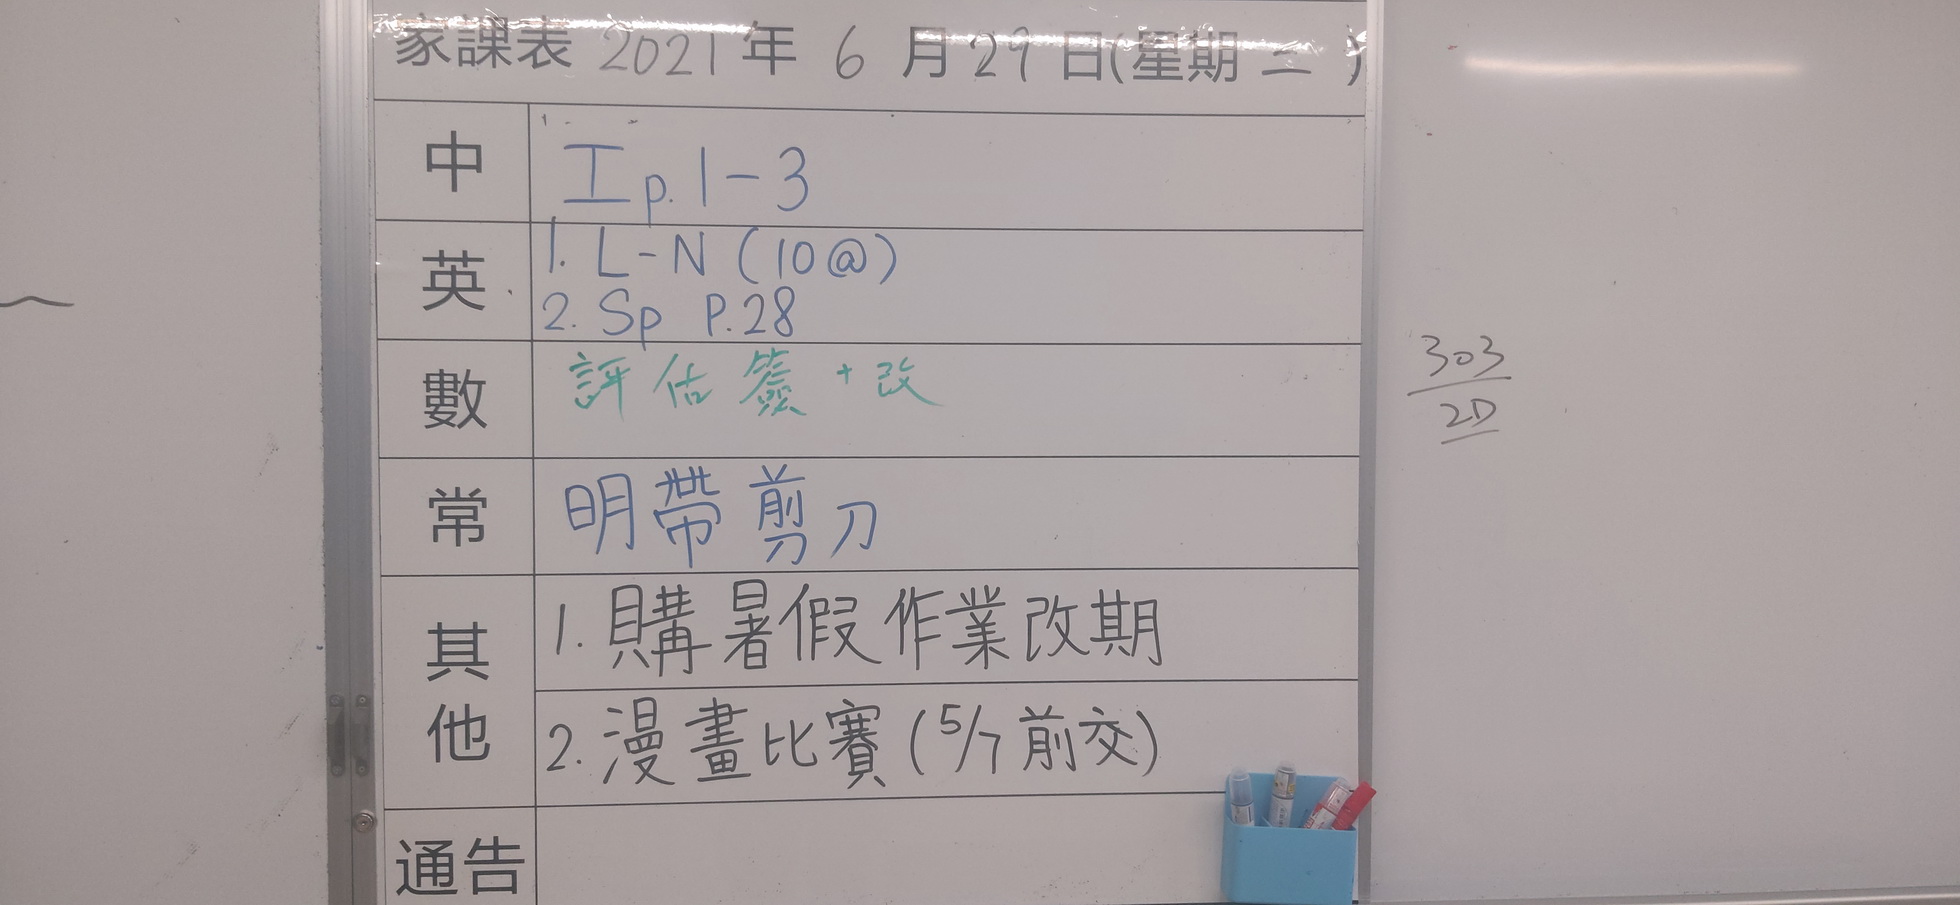 家課表 2021年 6月29日(星期二)
中 工 p.1-3
英 1. L-N (10@)
2. Sp P.28
數 評估簽+改
常 明帶剪刀
其他 1. 購暑假作業改期
2. 漫畫比賽(5/7前交)
通告
303
2D